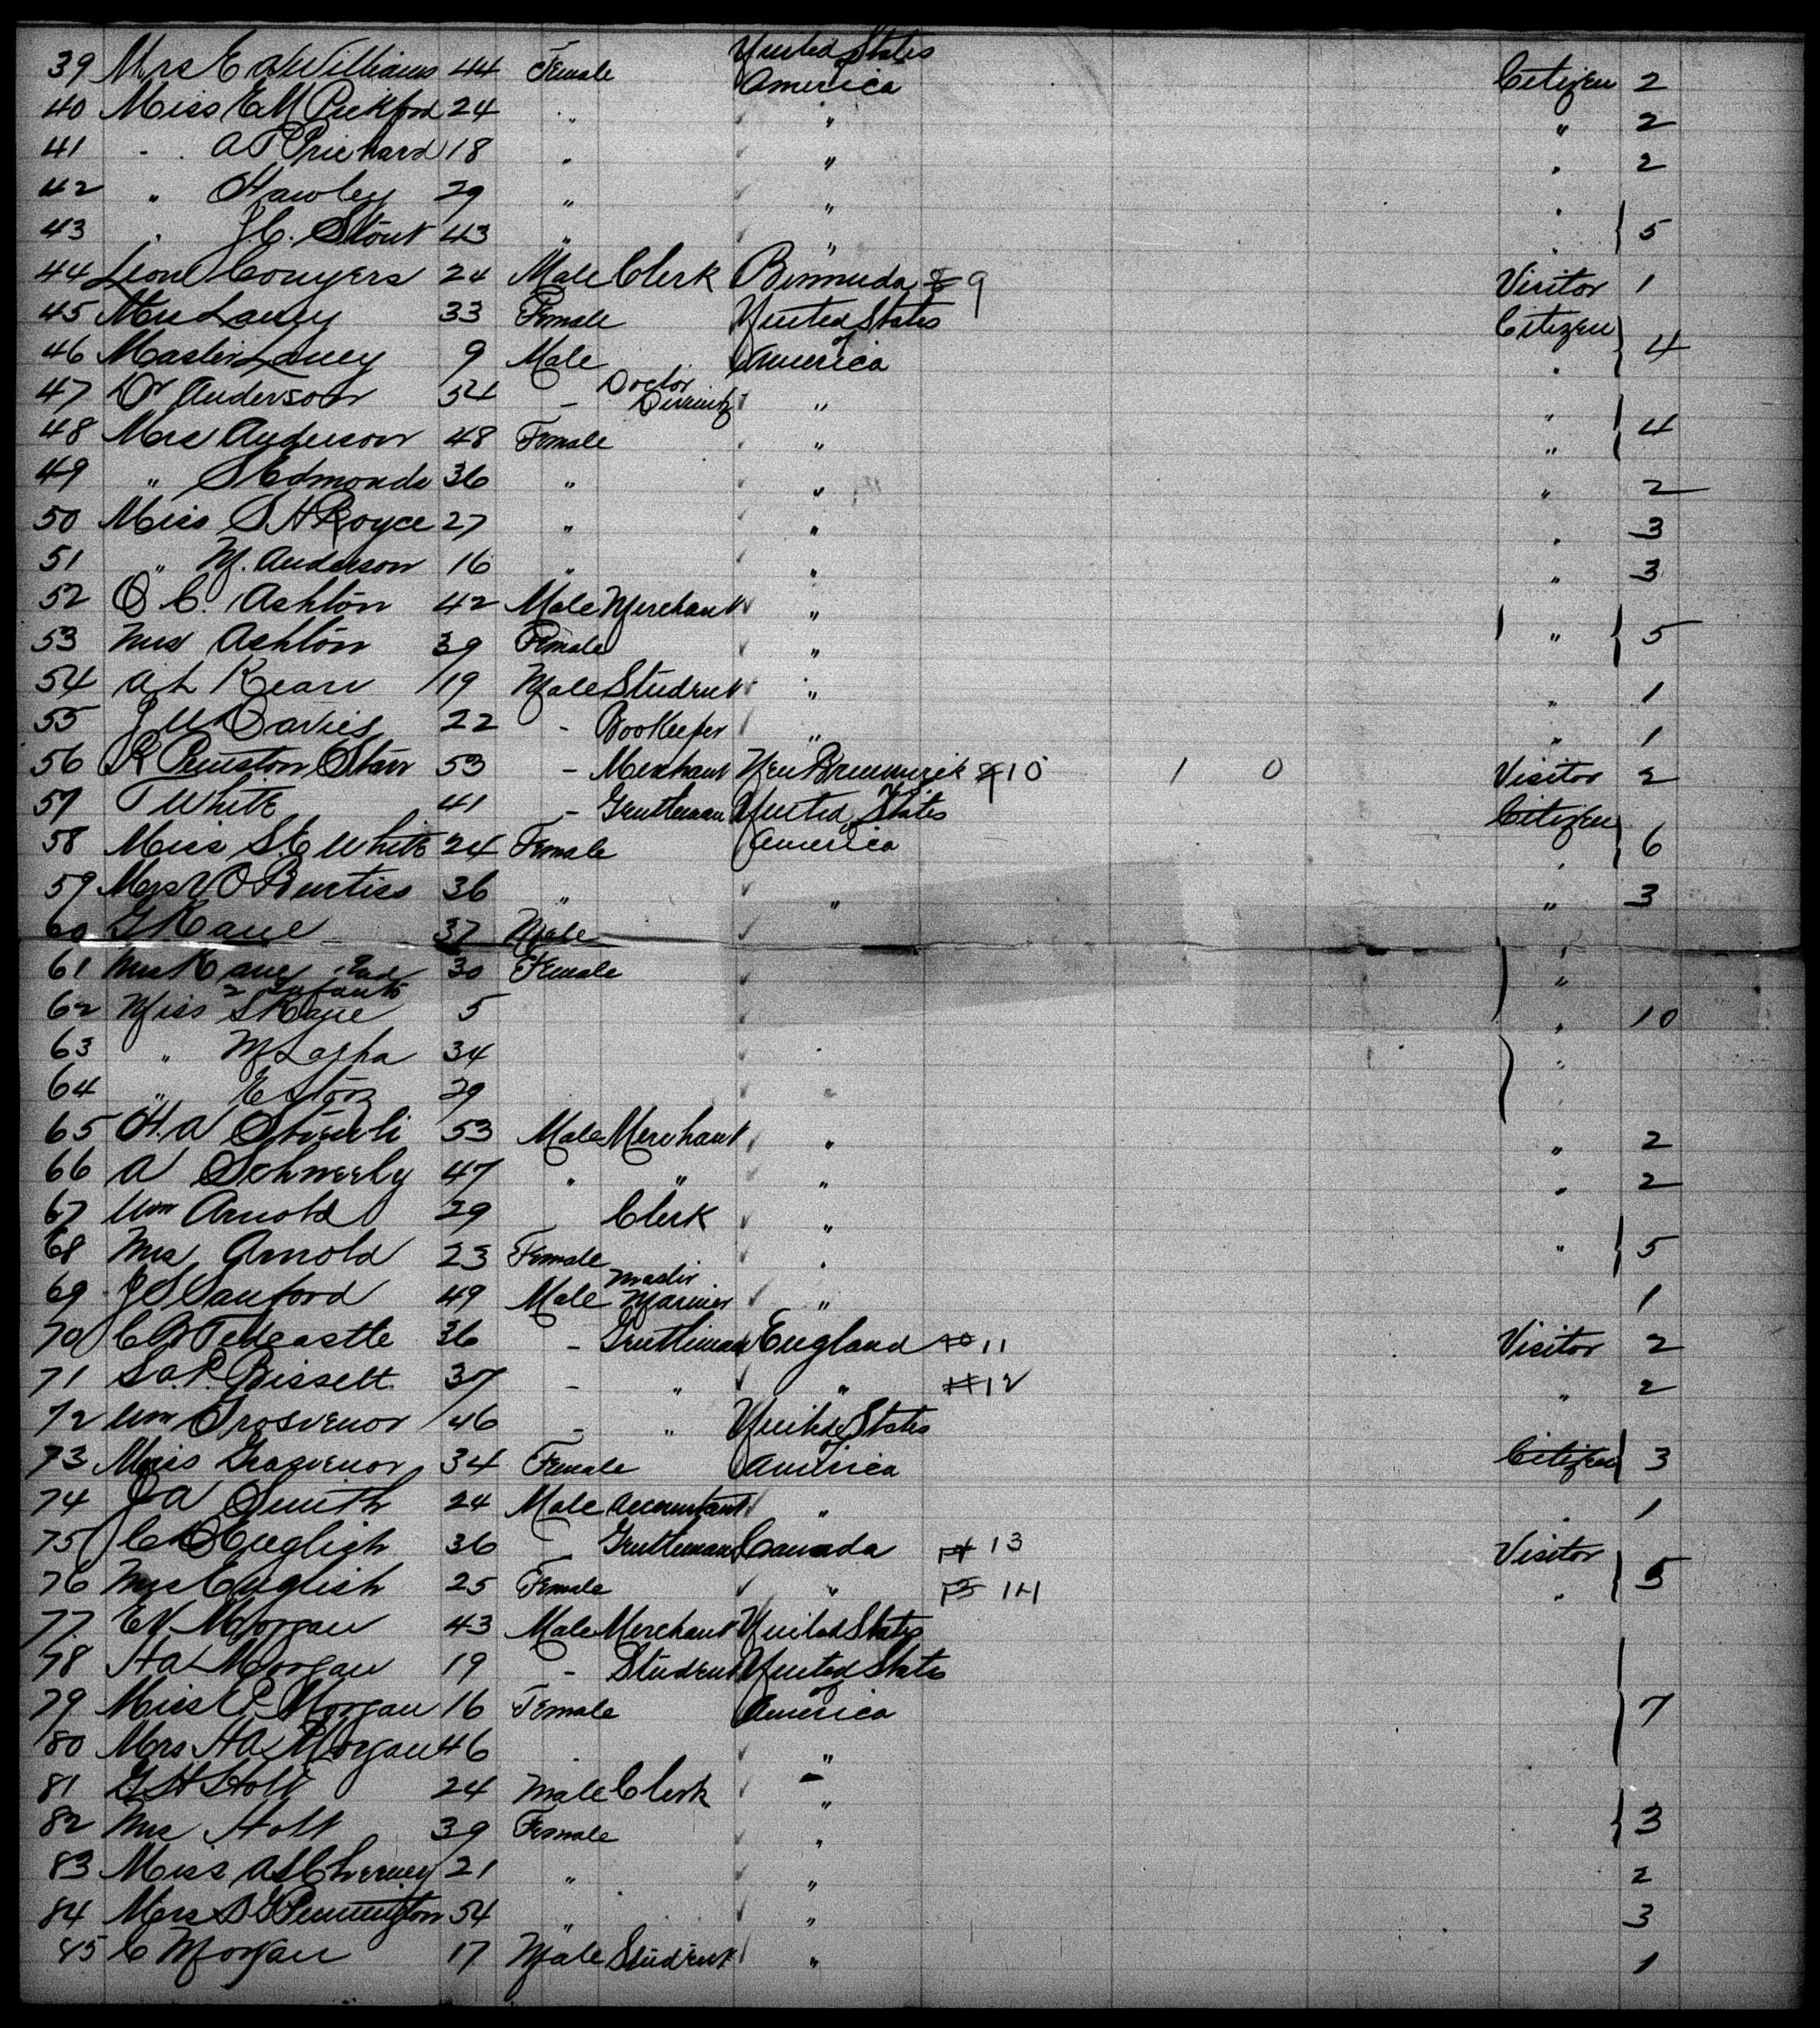 39 Mrs E A Williams 44 Female United States of America Citizen 2
40 Miss E M Pickford 24 " " " 2
41 " A P Prichard 18 " " " 2
42 " Hawley 29 " " "
43 " J.C. Stout 43 " " " 5
44 Conyers 24 Male Clerk Bermuda 9 Visitor 1
45 Mrs Laney 33 Female United States Citizen
46 Master Laney 9 Male of America " 4
47 Dr Anderson 54 - Doctor Divinity " "
48 Mrs Anderson 48 Female " " 4
49 " S Edmonds 36 " " " 2
50 Miss S H Royce 27 " " " 3
51 " M. Anderson 16 " " " 3
52 O C. Ashton 42 Male Merchant "
53 Mrs Ashton 39 Female " " 5
54 A L Kean 19 Male Student " " 1
55 J W Davies 22 - Bookeeper " " 1
56 R Starr 53 - Merchant New Brunswick 10 1 0 Visitor 2
57 T White 41 - Gentleman United States Citizen
58 Miss S E White 24 Female of America " 6
59 Mrs Burtiss 36 " " " 3
60 G Kane 37 Male
61 Mrs Kane and 2 Infants 30 Female "
62 Miss S Kane 5 " 10
63 " M 34 "
64 " E 29
65 H. A 53 Male Merchant " " 2
66 A 47 " " " " 2
67 Wm Arnold 29 Clerk "
68 Mrs Arnold 23 Female " " 5
69 J S Sanford 49 Male Master Mariner " 1
70 Tedcastle 36 - Gentleman England 11 Visitor 2
71 Bissett 37 - " " 12 " 2
72 Wm Grosvenor 46 - " United States
73 Miss Grosvenor 34 Female of America Citizen 3
74 J A Smith 24 Male Accountant " " 1
75 English 36 - Gentleman Canada 13 Visitor
76 Mrs English 25 Female " 14 " 5
77 Morgan 43 Male Merchant United States
78 Morgan 19 - Student United States
79 Miss Morgan 16 Female of America 7
80 Mrs H A Morgan 46 "
81 G H Holt 24 Male Clerk "
82 Mrs Holt 39 Female " 3
83 Miss 21 " " 2
84 Mrs Pennington 54 " " 3
85 C Morgan 17 Male Student " 1